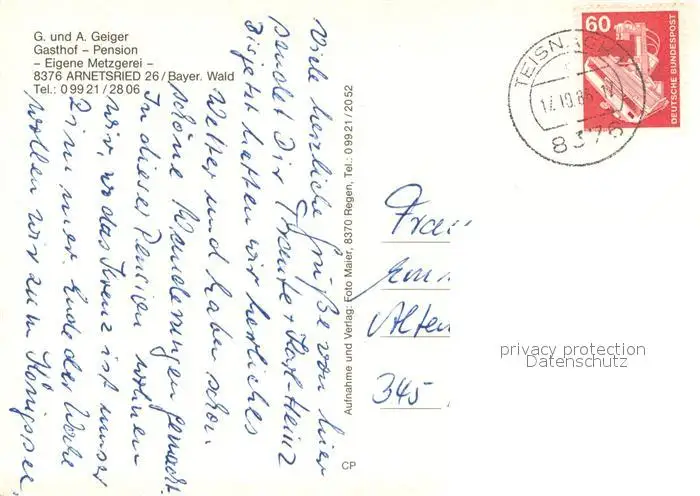 G. und A. Geiger
Gasthof – Pension
– Eigene Metzgerei –
8376 ARNETSRIED 26/Bayer. Wald
Tel.: 0 99 21 / 28 06
Viele herzliche Grüße von hier
sendet Dir Traute + Karl-Heinz
Bis jetzt hatten wir herrliches
Wetter und haben schon
schöne Wanderungen gemacht.
In dieser Pension wohnen
wir, wo das Kreuz ist unser
Zimmer. Ende der Woche
wollen wir zum Königssee.
Aufnahme und Verlag: Foto Maier, 8370 Regen, Tel.: 0 99 21 / 20 52
CP
60
DEUTSCHE BUNDESPOST
TEISNACH
17.10.86
8376
Frau
Alten
345
privacy protection
Datenschutz